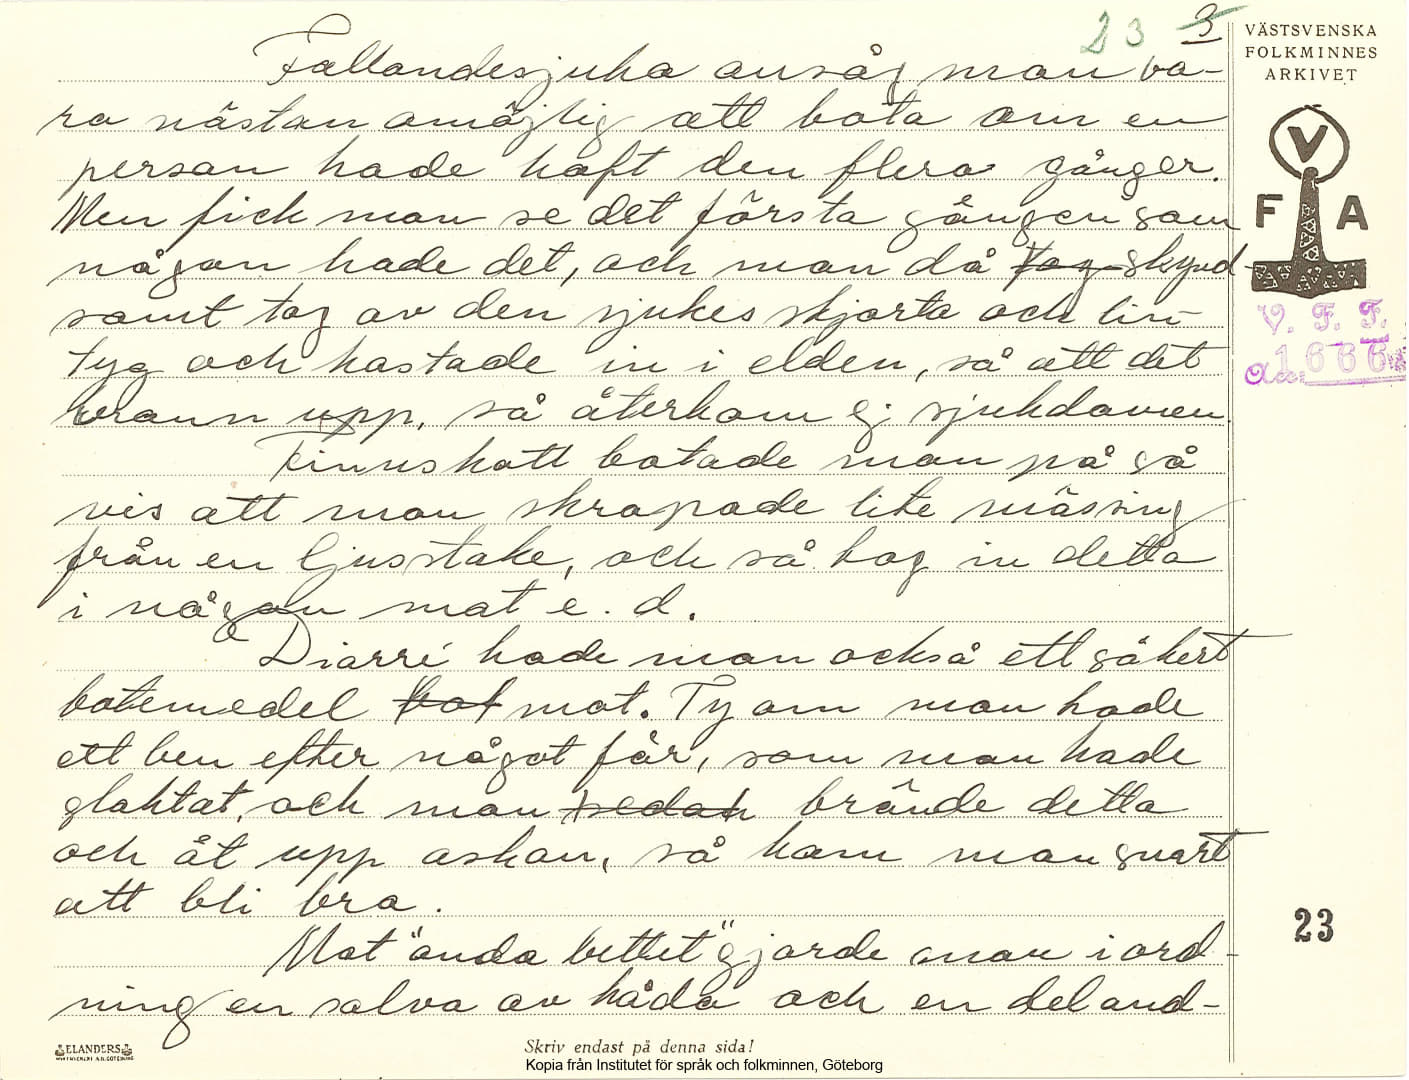 23 3
VÄSTSVENSKA
FOLKMINNES
ARKIVET
V
F A
V. F. F.
Acc. 1666
Fallandesjuka ansåg man va-
ra nästan omöjlig att bota om en
person hade haft den flera gånger.
Men fick man se det första gången som
någon hade det, och man då tog skynd-
samt tog av den sjukes skjorta och lin-
tyg och kastade in i elden, så att det
brann upp, så återkom ej sjukdomen.
Finnskott botade man på så
vis att man skrapade lite mässing
från en ljusstake, och så tog in detta
i någon mat e. d.
Diarré hade man också ett säkert
botemedel bot mot. Ty om man hade
ett ben efter något får, som man hade
slaktat, och man sedan brände detta
och åt upp askan, så kom man snart
att bli bra.
Mot "onda bettet" gjorde man i ord-
ning en salva av kåda och en del and-
23
ELANDERS
Skriv endast på denna sida!
Kopia från Institutet för språk och folkminnen, Göteborg